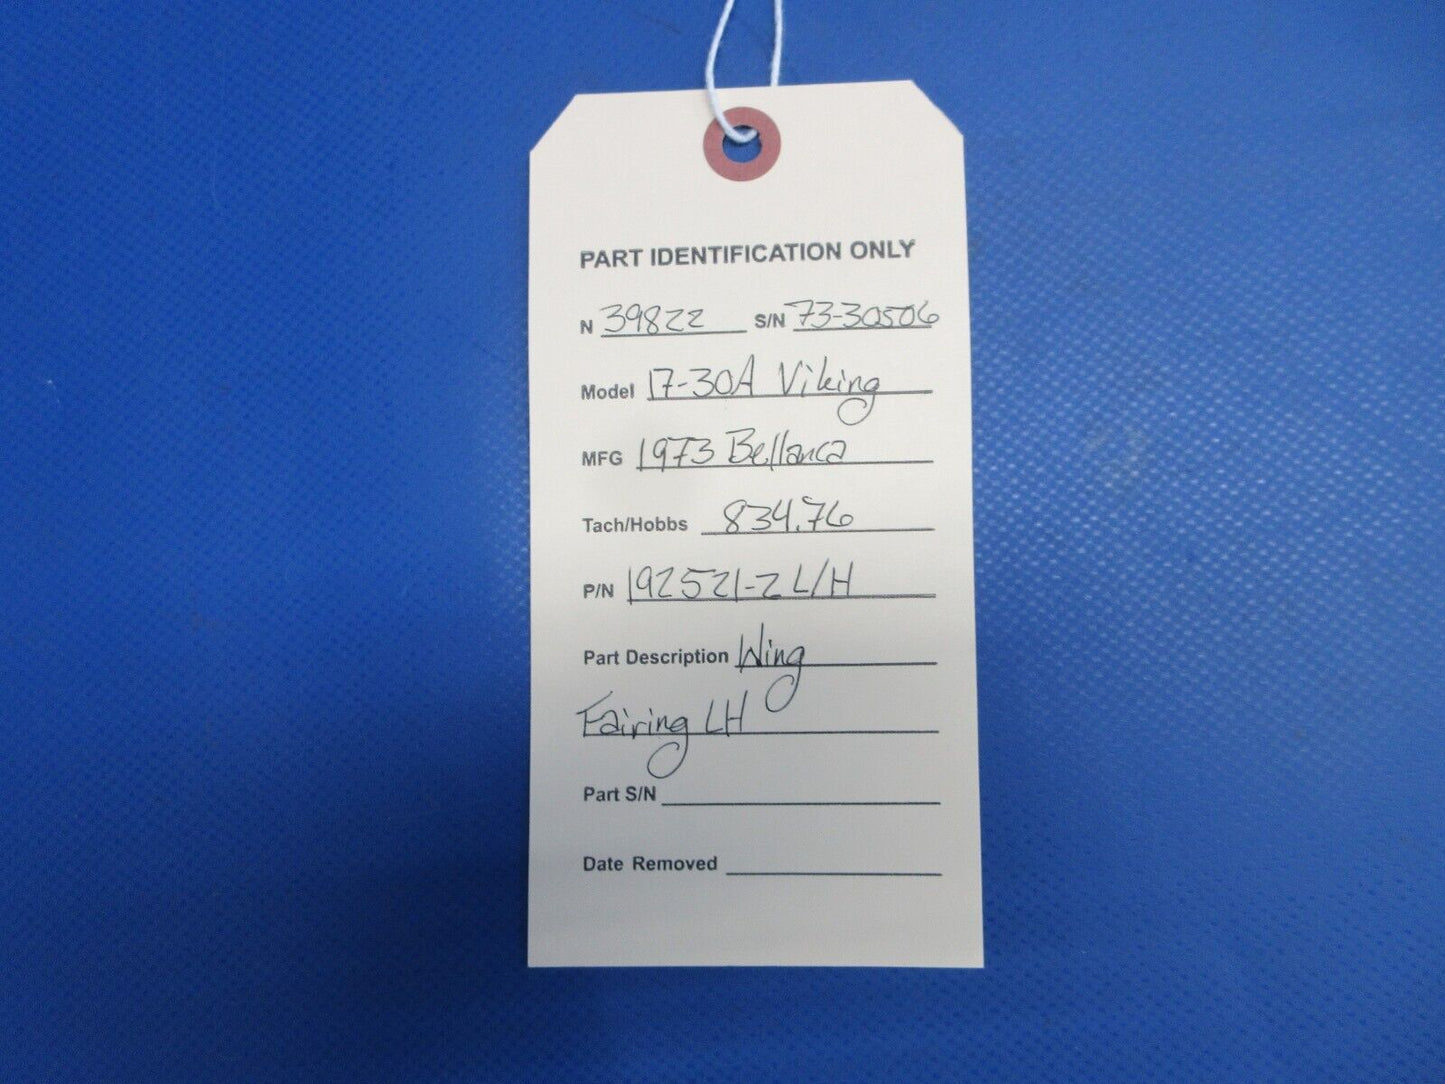 PART IDENTIFICATION ONLY
N 39822 S/N 73-30506
Model 17-30A Viking
MFG 1973 Bellanca
Tach/Hobbs 834.76
P/N 192521-2 L/H
Part Description Wing
Fairing LH
Part S/N
Date Removed